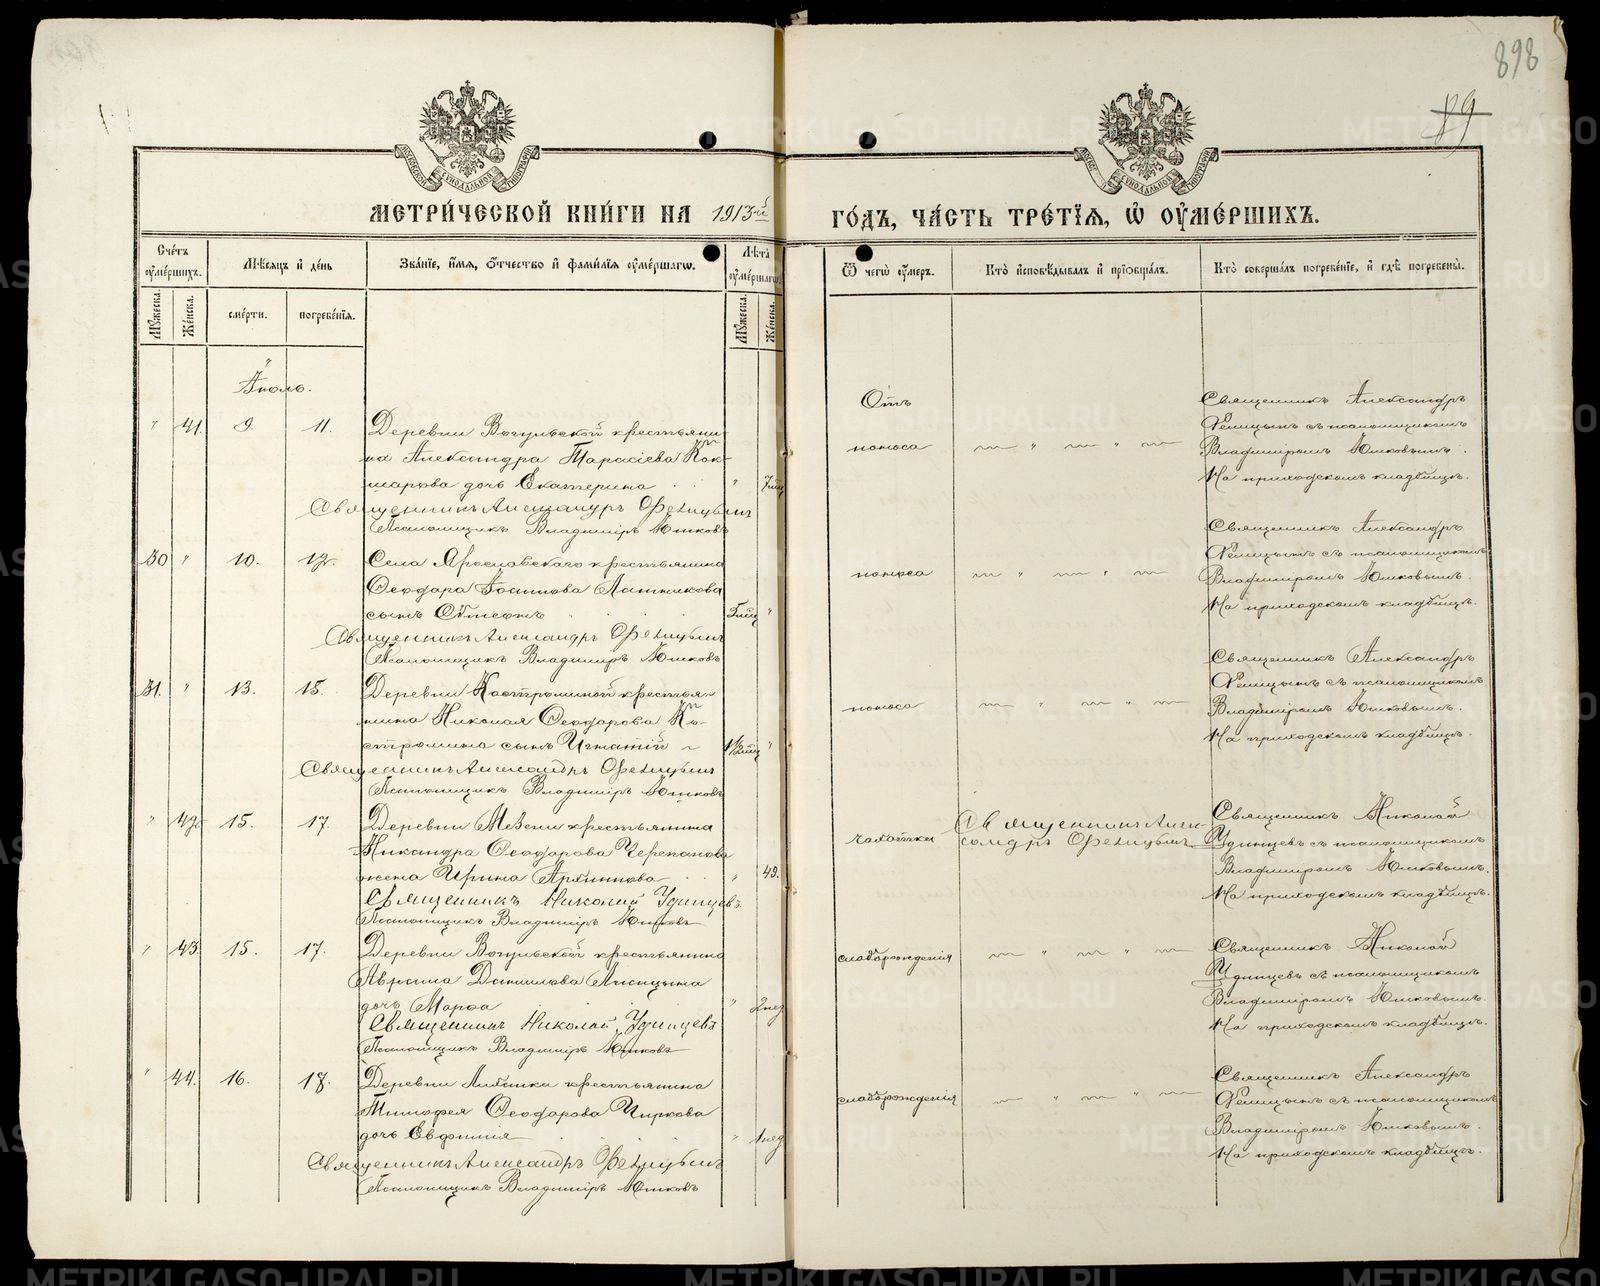 898
89
МЕТРИ́ЧЕСКОЙ КНИ́ГИ НА 1913й ГО́ДЪ, ЧА́СТЬ ТРЕ́ТЇѦ, Ѡ҆ ОУ҆МЕ́РШИХЪ.
Сче́тъ оу҆ме́ршихъ.
Мꙋ́жеска.
Же́нска.
Мѣ́сѧцъ и҆ де́нь
сме́рти.
погребе́нїѧ.
Зва́нїе, и҆́мѧ, ѻ҆́тчество и҆ фами́лїѧ оу҆ме́ршагѡ.
Лѣ́та оу҆ме́ршагѡ.
Мꙋ́жеска.
Же́нска.
Ѿ чегѡ̀ оу҆́меръ.
Кто̀ и҆сповѣ́дывалъ и҆ прїѡбща́лъ.
Кто̀ соверша́лъ погребе́нїе, и҆ гдѣ̀ погребены̀.
Іюль.
" 41. 9. 11. Деревни Вогульской крестьяни-
на Александра Тарасіева Кок-
шарова дочь Екатерина " 7 мц
Священникъ Александръ Ѳелицынъ
Псаломщикъ Владиміръ Юшковъ
Отъ
поноса
Священникъ Александръ
Ѳелицынъ съ псаломщикомъ
Владиміромъ Юшковымъ.
На приходскомъ кладбищѣ.
30 " 10. 12. Села Ярославскаго крестьянина
Ѳеодора Іосифова Латникова
сынъ 5 мц "
Священникъ Александръ Ѳелицынъ
Псаломщикъ Владиміръ Юшковъ
поноса
Священникъ Александръ
Ѳелицынъ съ псаломщикомъ
Владиміромъ Юшковымъ.
На приходскомъ кладбищѣ.
31. " 13. 15. Деревни Костроминой крестья-
нина Николая Ѳеодорова Ко-
стромина сынъ Игнатій 1 1/2 мц "
Священникъ Александръ Ѳелицынъ
Псаломщикъ Владиміръ Юшковъ
поноса
Священникъ Александръ
Ѳелицынъ съ псаломщикомъ
Владиміромъ Юшковымъ.
На приходскомъ кладбищѣ.
" 42 15. 17. Деревни Мезени крестьянина
Никандра Ѳеодорова Черепанова
жена Ирина Архипова " 49.
Священникъ Николай Удинцевъ
Псаломщикъ Владиміръ Юшковъ
чахотки
Священникъ Алек-
сандръ Ѳелицынъ
Священникъ Николай
Удинцевъ съ псаломщикомъ
Владиміромъ Юшковымъ.
На приходскомъ кладбищѣ.
" 43. 15. 17. Деревни Вогульской крестьянина
Аврама Данилова Лисицына
дочь Марѳа " 2 нед
Священникъ Николай Удинцевъ
Псаломщикъ Владиміръ Юшковъ
слаборожденія
Священникъ Николай
Удинцевъ съ псаломщикомъ
Владиміромъ Юшковымъ.
На приходскомъ кладбищѣ.
" 44. 16. 18. Деревни Липовки крестьянина
Тимоѳея Ѳеодорова Чиркова
дочь Евфимія " 1 нед
Священникъ Александръ Ѳелицынъ
Псаломщикъ Владиміръ Юшковъ
слаборожденія
Священникъ Александръ
Ѳелицынъ съ псаломщикомъ
Владиміромъ Юшковымъ.
На приходскомъ кладбищѣ.
METRIKI.GASO-URAL.RU